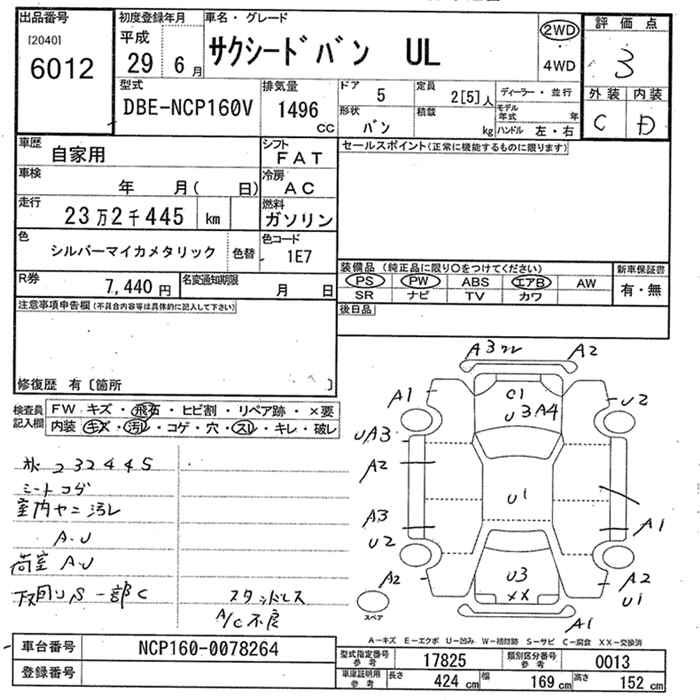 出品番号
[2040]
6012
初度登録年月
平成
29 6月
車名・グレード
サクシードバン UL
2WD
4WD
評価点
3
外装 内装
C D
型式
DBE-NCP160V
排気量
1496
CC
ドア
5
定員
2[5]人
ディーラー・並行
形状
バン
積載
kg
モデル年式 年
ハンドル 左・右
車歴
自家用
シフト
FAT
セールスポイント(正常に機能するものに限ります)
車検
年 月( 日)
冷房
AC
走行
23万2千445 km
燃料
ガソリン
色
シルバーマイカメタリック
色替
色コード
1E7
R券
7,440円
名変通知期限
月 日
装備品 (純正品に限り○をつけてください)
PS PW ABS エアB AW
SR ナビ TV カワ
新車保証書
有・無
後日品
注意事項申告欄(不具合内容等は具体的に記入して下さい)
修復歴 有〔箇所 〕
検査員記入欄
FW キズ・飛石・ヒビ割・リペア跡・×要
内装 キズ・汚レ・コゲ・穴・スレ・キレ・破レ
232445
シートコゲ
室内ヤニ汚レ
A・U
荷室 A・U
下回りS 一部C
スタッドレス
A/C不良
A3ワレ
A2
A1
C1
U3 A4
U2
UA3
A2
U1
A3
A1
U2
A2
U3
XX
A2
U1
A1
スペア
A-キズ E-エクボ U-凹み W-補修跡 S-サビ C-腐食 XX-交換済
車台番号
NCP160-0078264
登録番号
型式指定番号参考
17825
類別区分番号参考
0013
車庫証明用参考
長さ 424 cm
幅 169 cm
高さ 152 cm